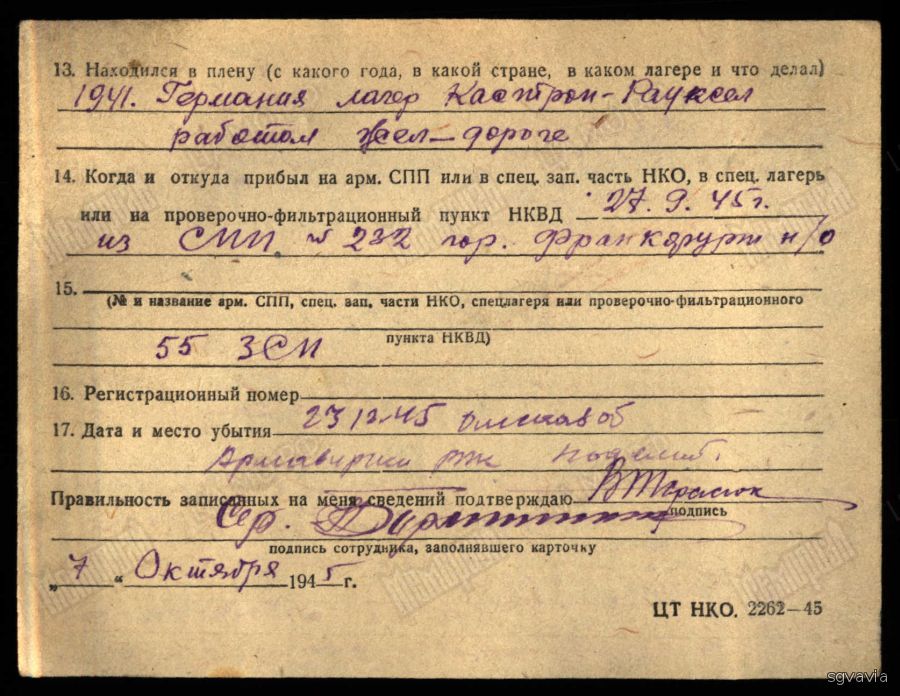 13. Находился в плену (с какого года, в какой стране, в каком лагере и что делал)
1941. Германия лагер Кастроп-Рауксел
работал жел-дороге
14. Когда и откуда прибыл на арм. СПП или в спец. зап. часть НКО, в спец. лагерь
или на проверочно-фильтрационный пункт НКВД 27.9.45г.
из СПП № 232 гор. Франкфурт н/о
15.
(№ и название арм. СПП, спец. зап. части НКО, спецлагеря или проверочно-фильтрационного
пункта НКВД)
55 ЗСП
16. Регистрационный номер
17. Дата и место убытия 23 12 45 Омская об
Правильность записанных на меня сведений подтверждаю
подпись
Сер.
подпись сотрудника, заполнявшего карточку
„7“ Октября 1945 г.
ЦТ НКО. 2262—45
sgvavia